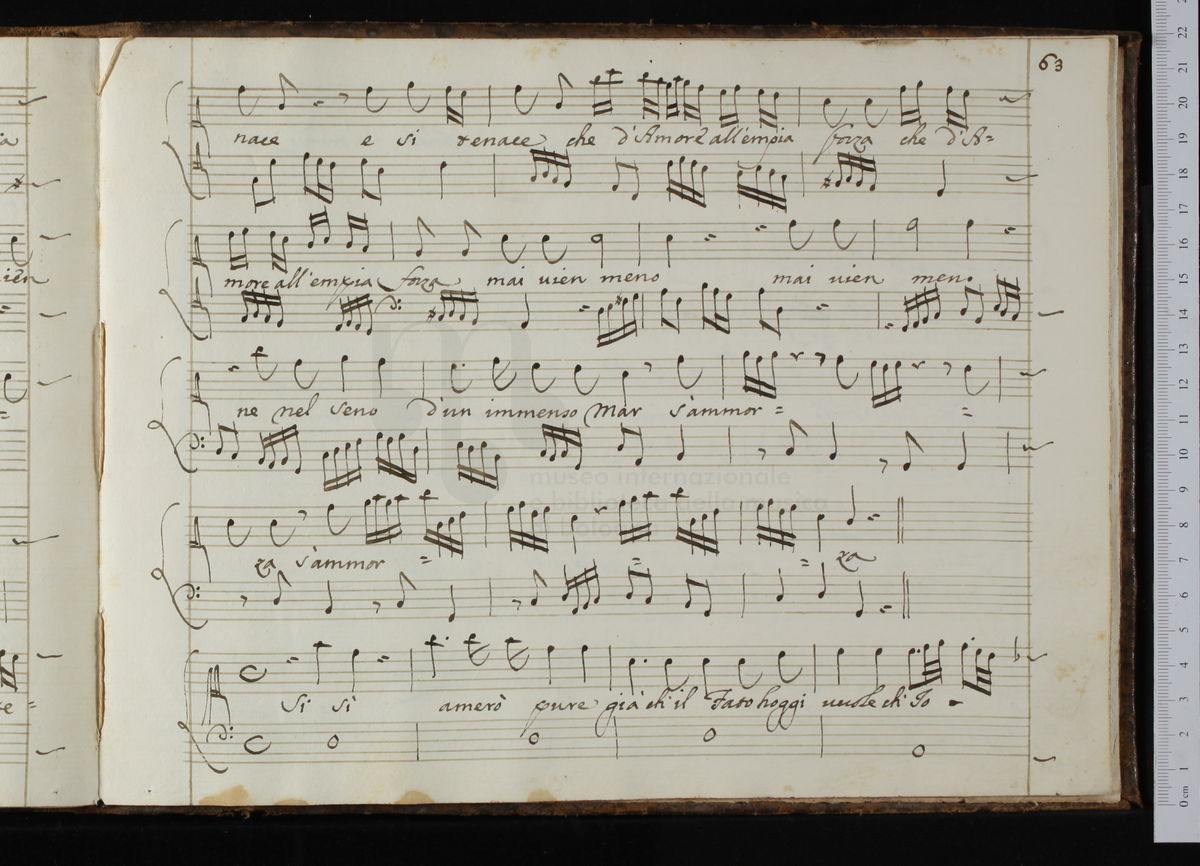 63
nace e si tenace che d'Amore all'empia forza che d'A=
more all'empia forza mai vien meno mai vien meno
ne nel seno d'un immenso Mar s'ammor = =
za s'ammor = = = za
Si Si amerò pure già ch'il Fato hoggi vuole ch'Io
museo internazionale
e biblioteca della musica